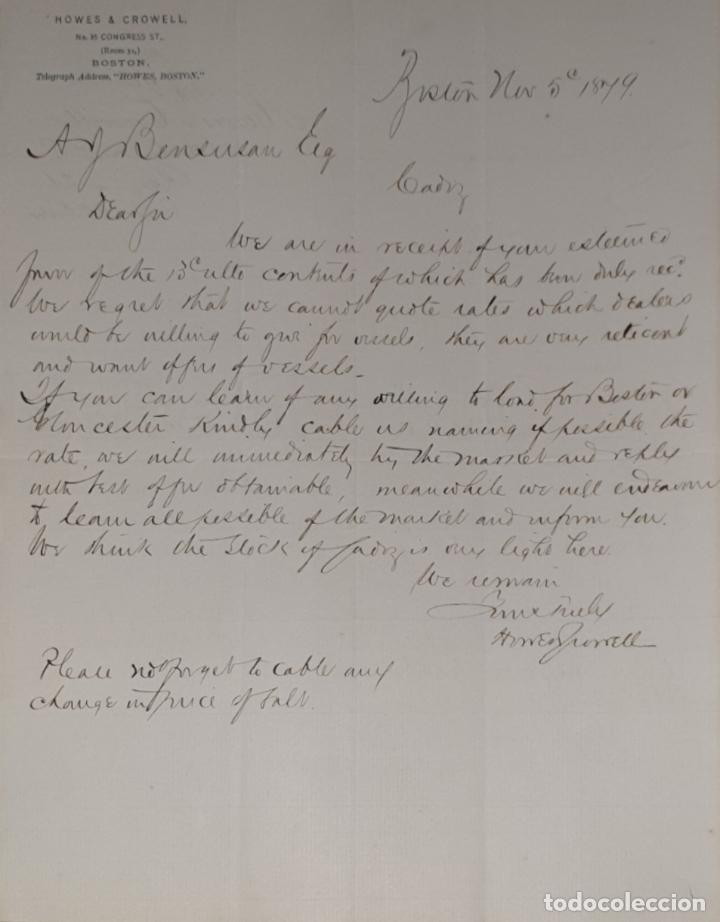 HOWES & CROWELL,
No. 15 CONGRESS ST.,
BOSTON.
Telegraph Address, "HOWES, BOSTON,"
Boston Nov 5th 1879.
A J Bensusan Esq
Cadiz
Dear Sir
We are in receipt of your esteemed
favor of the 13th ulto contents of which has been duly rec.
We regret that we cannot quote rates which dealers
would be willing to give for vessels, they are very reticent
and want offers of vessels.
If you can learn of any willing to load for Boston or
Gloucester Kindly cable us naming if possible the
rate, we will immediately try the market and reply
with best offer obtainable, meanwhile we will endeavor
to learn all possible of the market and inform you.
We think the stock of Cadiz is very light here
We remain
Yours truly
Howes & Crowell
Please not forget to cable any
change in price of Salt.
todocoleccion